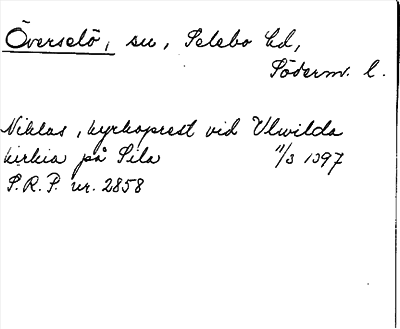 Överselö, sn, Selebo hd,
Söderm. l.
Niklas, kyrkoprest vid Vlwilda
kirkia på Sila 11/3 1397
S.R.P. nr. 2858